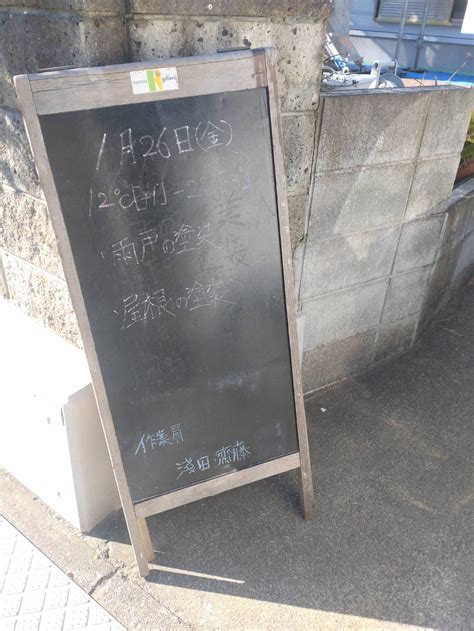 1月26日(金)
12℃[+1] -2℃
・雨戸の塗装
・屋根の塗装
作業員
浅田・齋藤